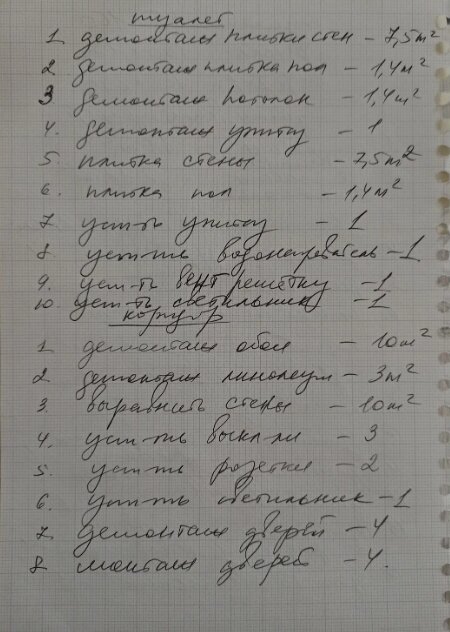 туалет
1 демонтаж плитки стен - 7,5 м²
2 демонтаж плитка пол - 1,4 м²
3 демонтаж потолок - 1,4 м²
4. демонтаж унитаз - 1
5. плитка стены - 7,5 м²
6. плитка пол - 1,4 м²
7 уст-ть унитаз - 1
8 уст-ть водонагреватель - 1
9. уст-ть вент решетку - 1
10. уст-ть светильник - 1
коридор
1 демонтаж обои - 10 м²
2 демонтаж линолеум - 3 м²
3. выравнить стены - 10 м²
4. уст-ть выкл-ли - 3
5. уст-ть розетки - 2
6. уст-ть светильник - 1
7 демонтаж дверей - 4
8 монтаж дверей - 4.